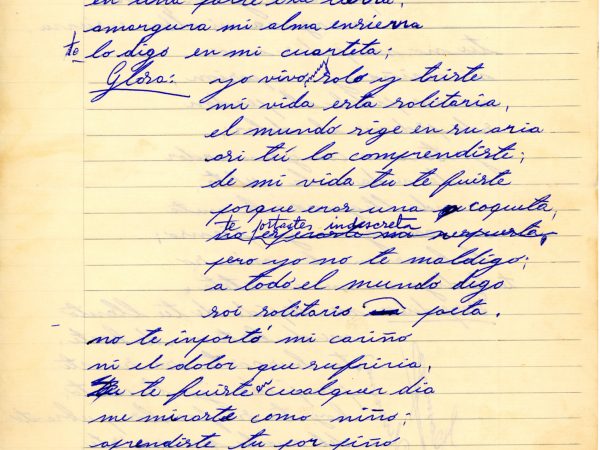 en una parte esa tierra,
amargura mi alma ensierra
te lo digo en mi cuarteta;
Glosa: yo vivo solo y triste
mi vida esta solitaria,
el mundo rige en su aria
asi tú lo comprendiste;
de mi vida tu te fuiste
porque eras una coqueta,
te portastes indescreta
no es respuesta,
pero yo no te maldigo;
a todo el mundo digo
soi solitario poeta.
no te inportó mi cariño
ni el dolor que sufriria,
tu te fuiste cualquer dia
me miraste como niño;
aprendiste tu por